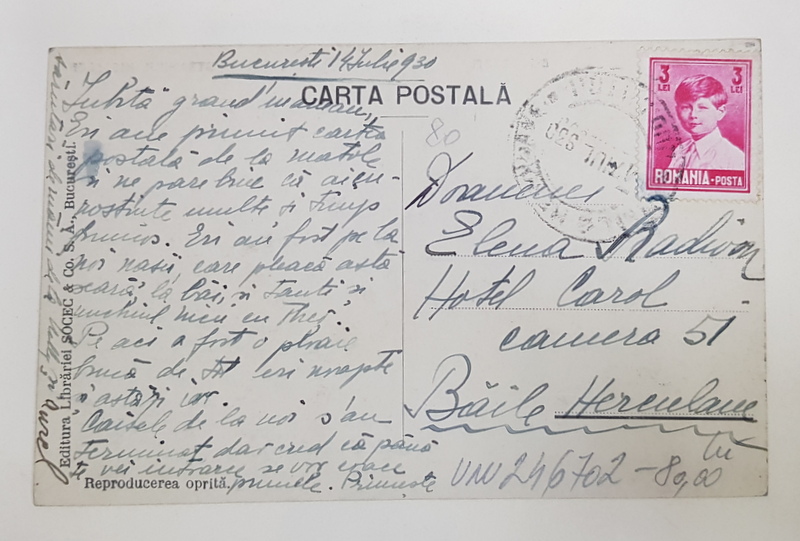 București 14 Iulie 930
CARTA POSTALĂ
Iubită grand'maman,
Eri am primit carta
postală de la matale
și ne pare bine că ai cu-
noștințe multe și timp
frumos. Eri au fost pe la
noi nașii, care pleacă astă
seară la băi, și tanti și
unchiul meu cu
Pe aci a fost o ploaie
bună de tot eri noapte
și astăzi iar.
Caisele de la noi s'au
terminat dar cred că până
te vei întoarce se vor coace
prunele. Primește
sărutări de mâini de la
Aurel
Editura Librăriei SOCEC & Co. S. A., Bucuresti.
Reproducerea oprită.
3 LEI
3 LEI
ROMANIA-POSTA
80
Doamnei
Elena Radivon
Hotel Carol
camera 51
Băile Herculane
UNV246702 -80,00